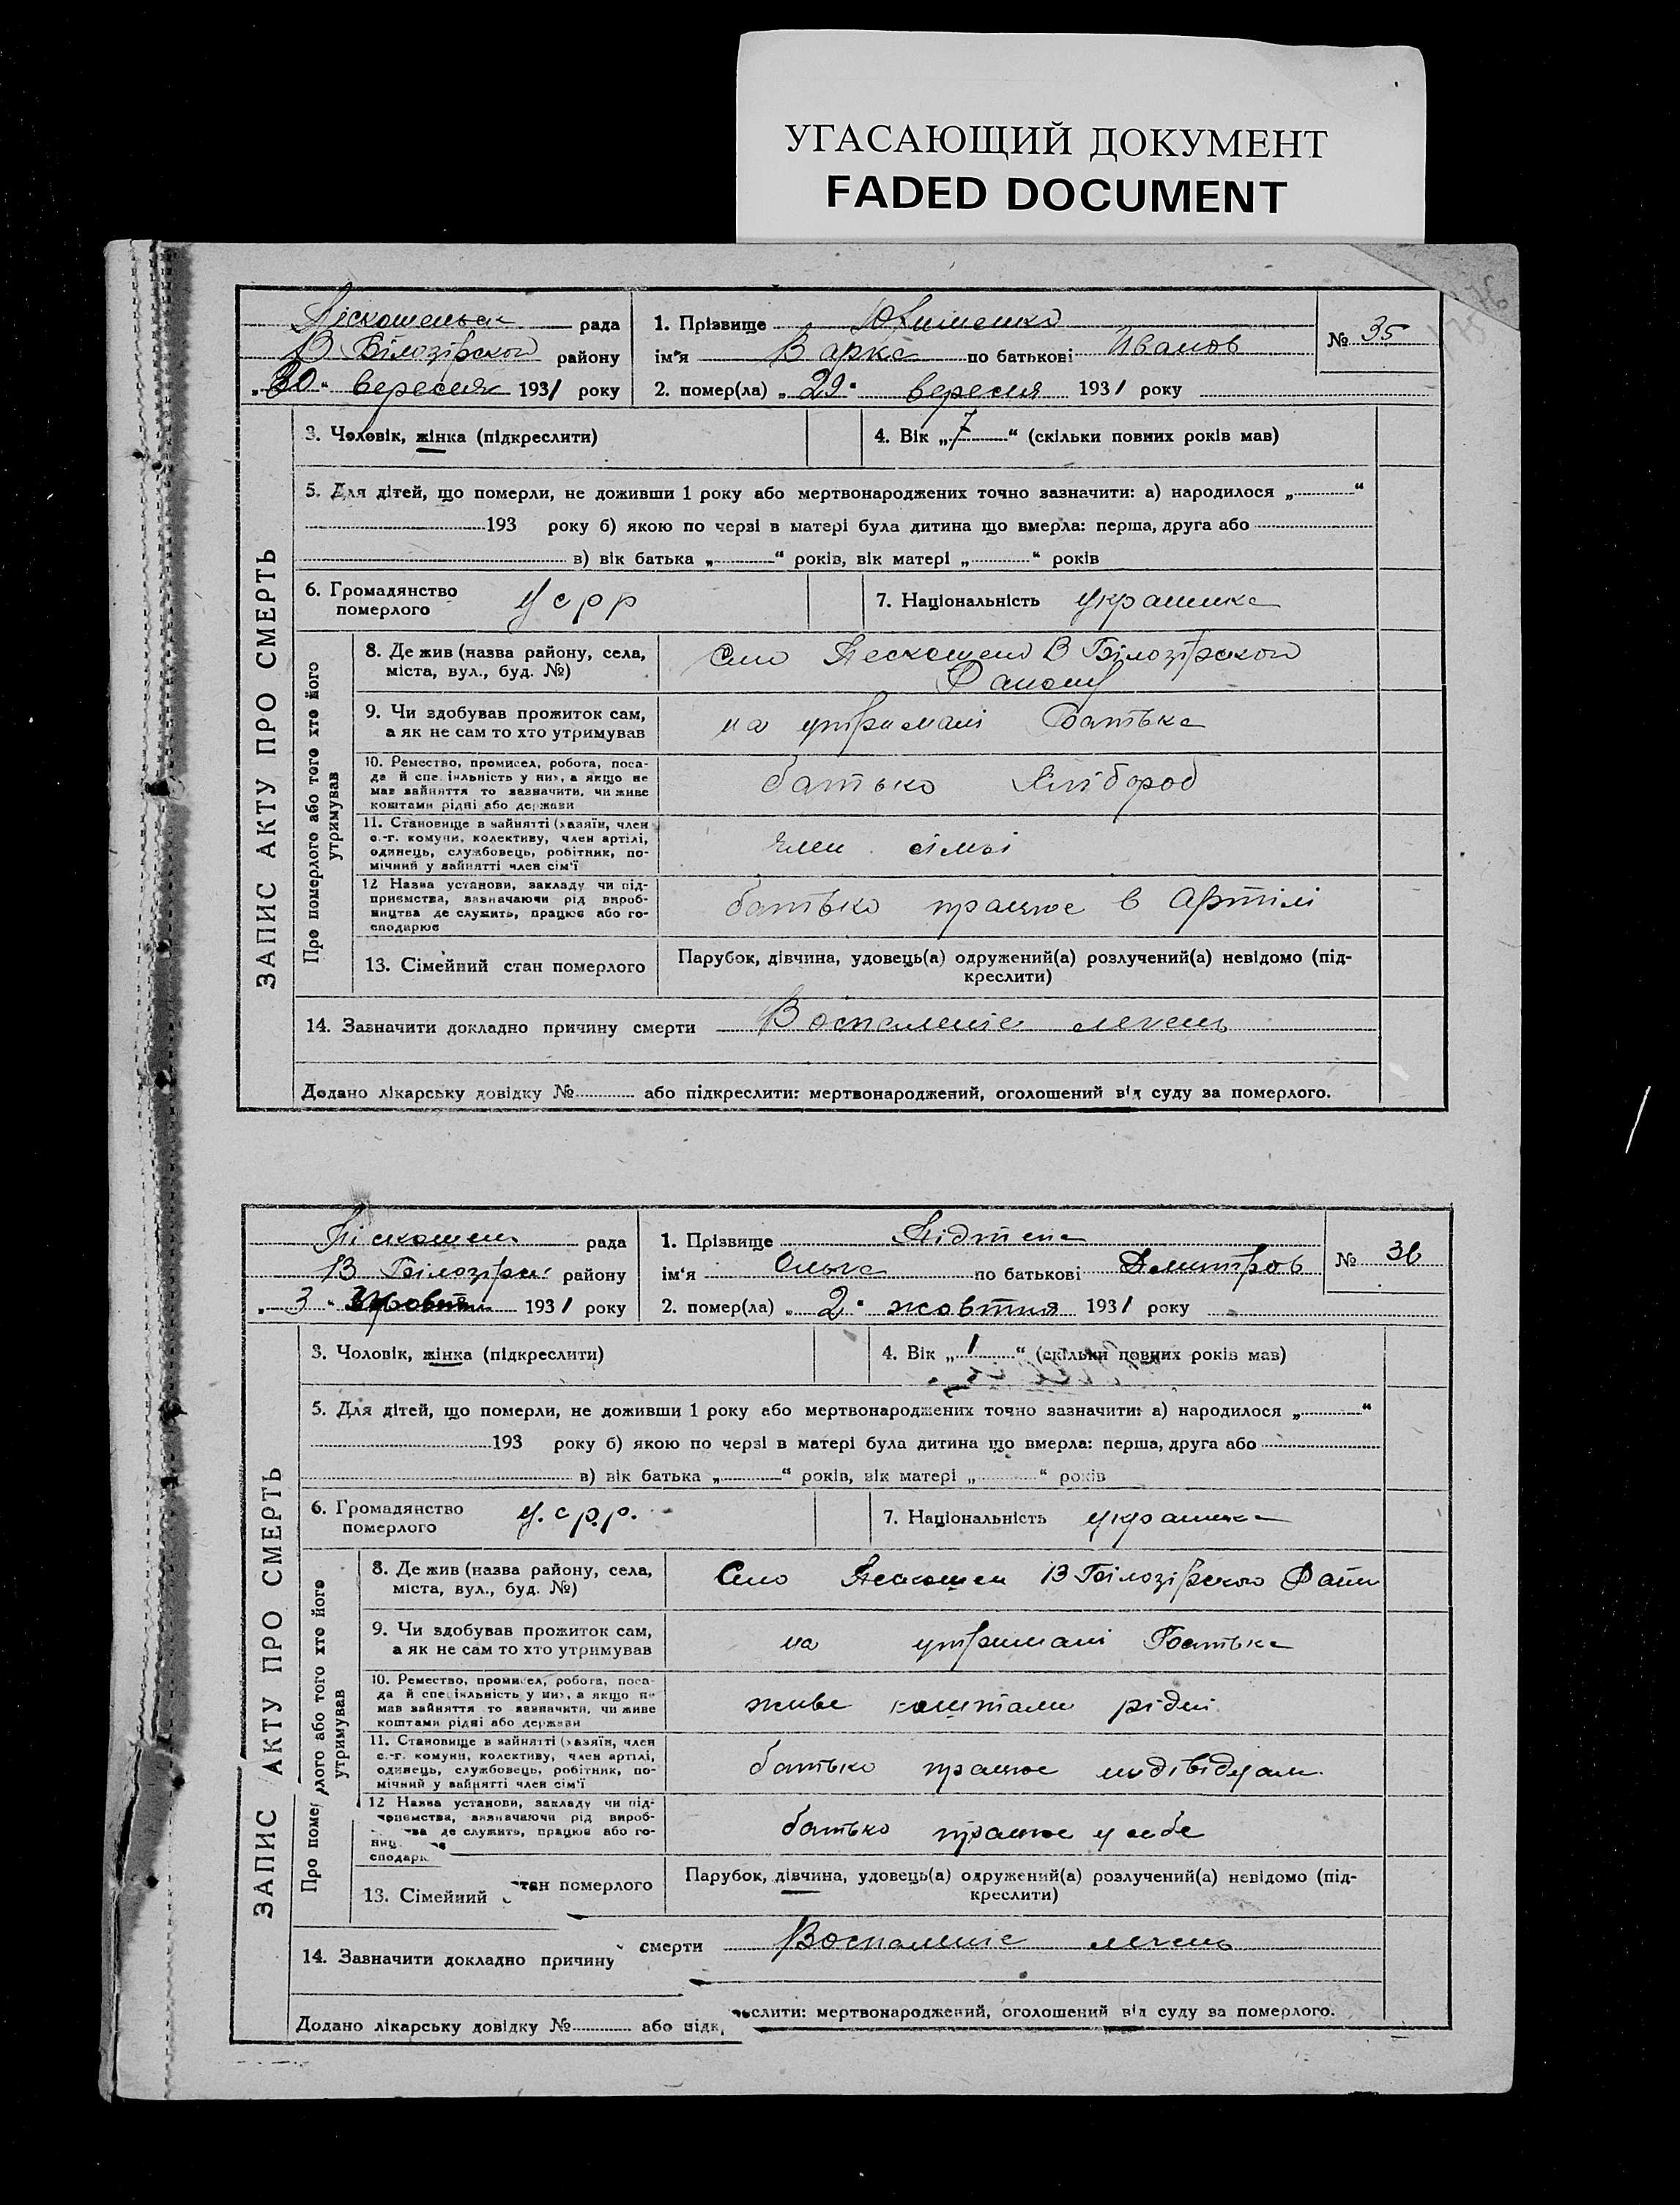 УГАСАЮЩИЙ ДОКУМЕНТ
FADED DOCUMENT
ЗАПИС АКТУ ПРО СМЕРТЬ
рада
В Білозірской району
„30“ вересня 1931 року
1. Прізвище Юхименко
ім'я Варка по батькові Иванов
2. помер(ла) „29“ вересня 1931 року
№ 35
3. Чоловік, жінка (підкреслити)
4. Вік „7“ (скільки повних років мав)
5. Для дітей, що померли, не доживши 1 року або мертвонароджених точно зазначити: а) народилося „ “
193 року б) якою по черзі в матері була дитина що вмерла: перша, друга або
в) вік батька „ “ років, вік матері „ “ років
6. Громадянство
померлого
усрр
7. Національність украинка
Про померлого або того хто його
утримував
8. Де жив (назва району, села,
міста, вул., буд. №)
Село В Білозірского
9. Чи здобував прожиток сам,
а як не сам то хто утримував
на утримані батька
10. Ремество, промисел, робота, поса-
да й спеціяльність у них, а якщо не
мав зайняття то зазначити, чи живе
коштами рідні або держави
батько хлібороб
11. Становище в зайнятті (хазяїн, член
с.-г. комуни, колективу, член артілі,
одинець, службовець, робітник, по-
мічний у зайнятті член сім'ї
член сімьі
12 Назва установи, закладу чи під-
приємства, зазначаючи рід вироб-
ництва де служить, працює або го-
сподарює
батько працює в Артілі
13. Сімейний стан померлого
Парубок, дівчина, удовець(а) одружений(а) розлучений(а) невідомо (під-
креслити)
14. Зазначити докладно причину смерти Воспаленіе легень
Додано лікарську довідку № або підкреслити: мертвонароджений, оголошений від суду за померлого.
ЗАПИС АКТУ ПРО СМЕРТЬ
рада
В Білозірс району
„3“ жовтня 1931 року
1. Прізвище
ім'я Ольга по батькові Дмитров
2. помер(ла) „2“ жовтня 1931 року
№ 36
3. Чоловік, жінка (підкреслити)
4. Вік „1“ (скільки повних років мав)
5. Для дітей, що померли, не доживши 1 року або мертвонароджених точно зазначити: а) народилося „ “
193 року б) якою по черзі в матері була дитина що вмерла: перша, друга або
в) вік батька „ “ років, вік матері „ “ років
6. Громадянство
померлого
у.с.р.р.
7. Національність украинка
лого або того хто його
утримував
8. Де жив (назва району, села,
міста, вул., буд. №)
Село В Білозірского
9. Чи здобував прожиток сам,
а як не сам то хто утримував
на утримані батька
10. Ремество, промисел, робота, поса-
да й спеціяльність у них, а якщо не
мав зайняття то зазначити, чи живе
коштами рідні або держави
живе коштами рідні
11. Становище в зайнятті (хазяїн, член
с.-г. комуни, колективу, член артілі,
одинець, службовець, робітник, по-
мічний у зайнятті член сім'ї
батько працює
12 Назва установи, закладу чи під-
приємства, зазначаючи рід вироб-
де служить, працює або го-
батько працює у себе
13. Сімейний стан померлого
Парубок, дівчина, удовець(а) одружений(а) розлучений(а) невідомо (під-
креслити)
14. Зазначити докладно причину смерти Воспаленіе легень
Додано лікарську довідку № або підк еслити: мертвонароджений, оголошений від суду за померлого.